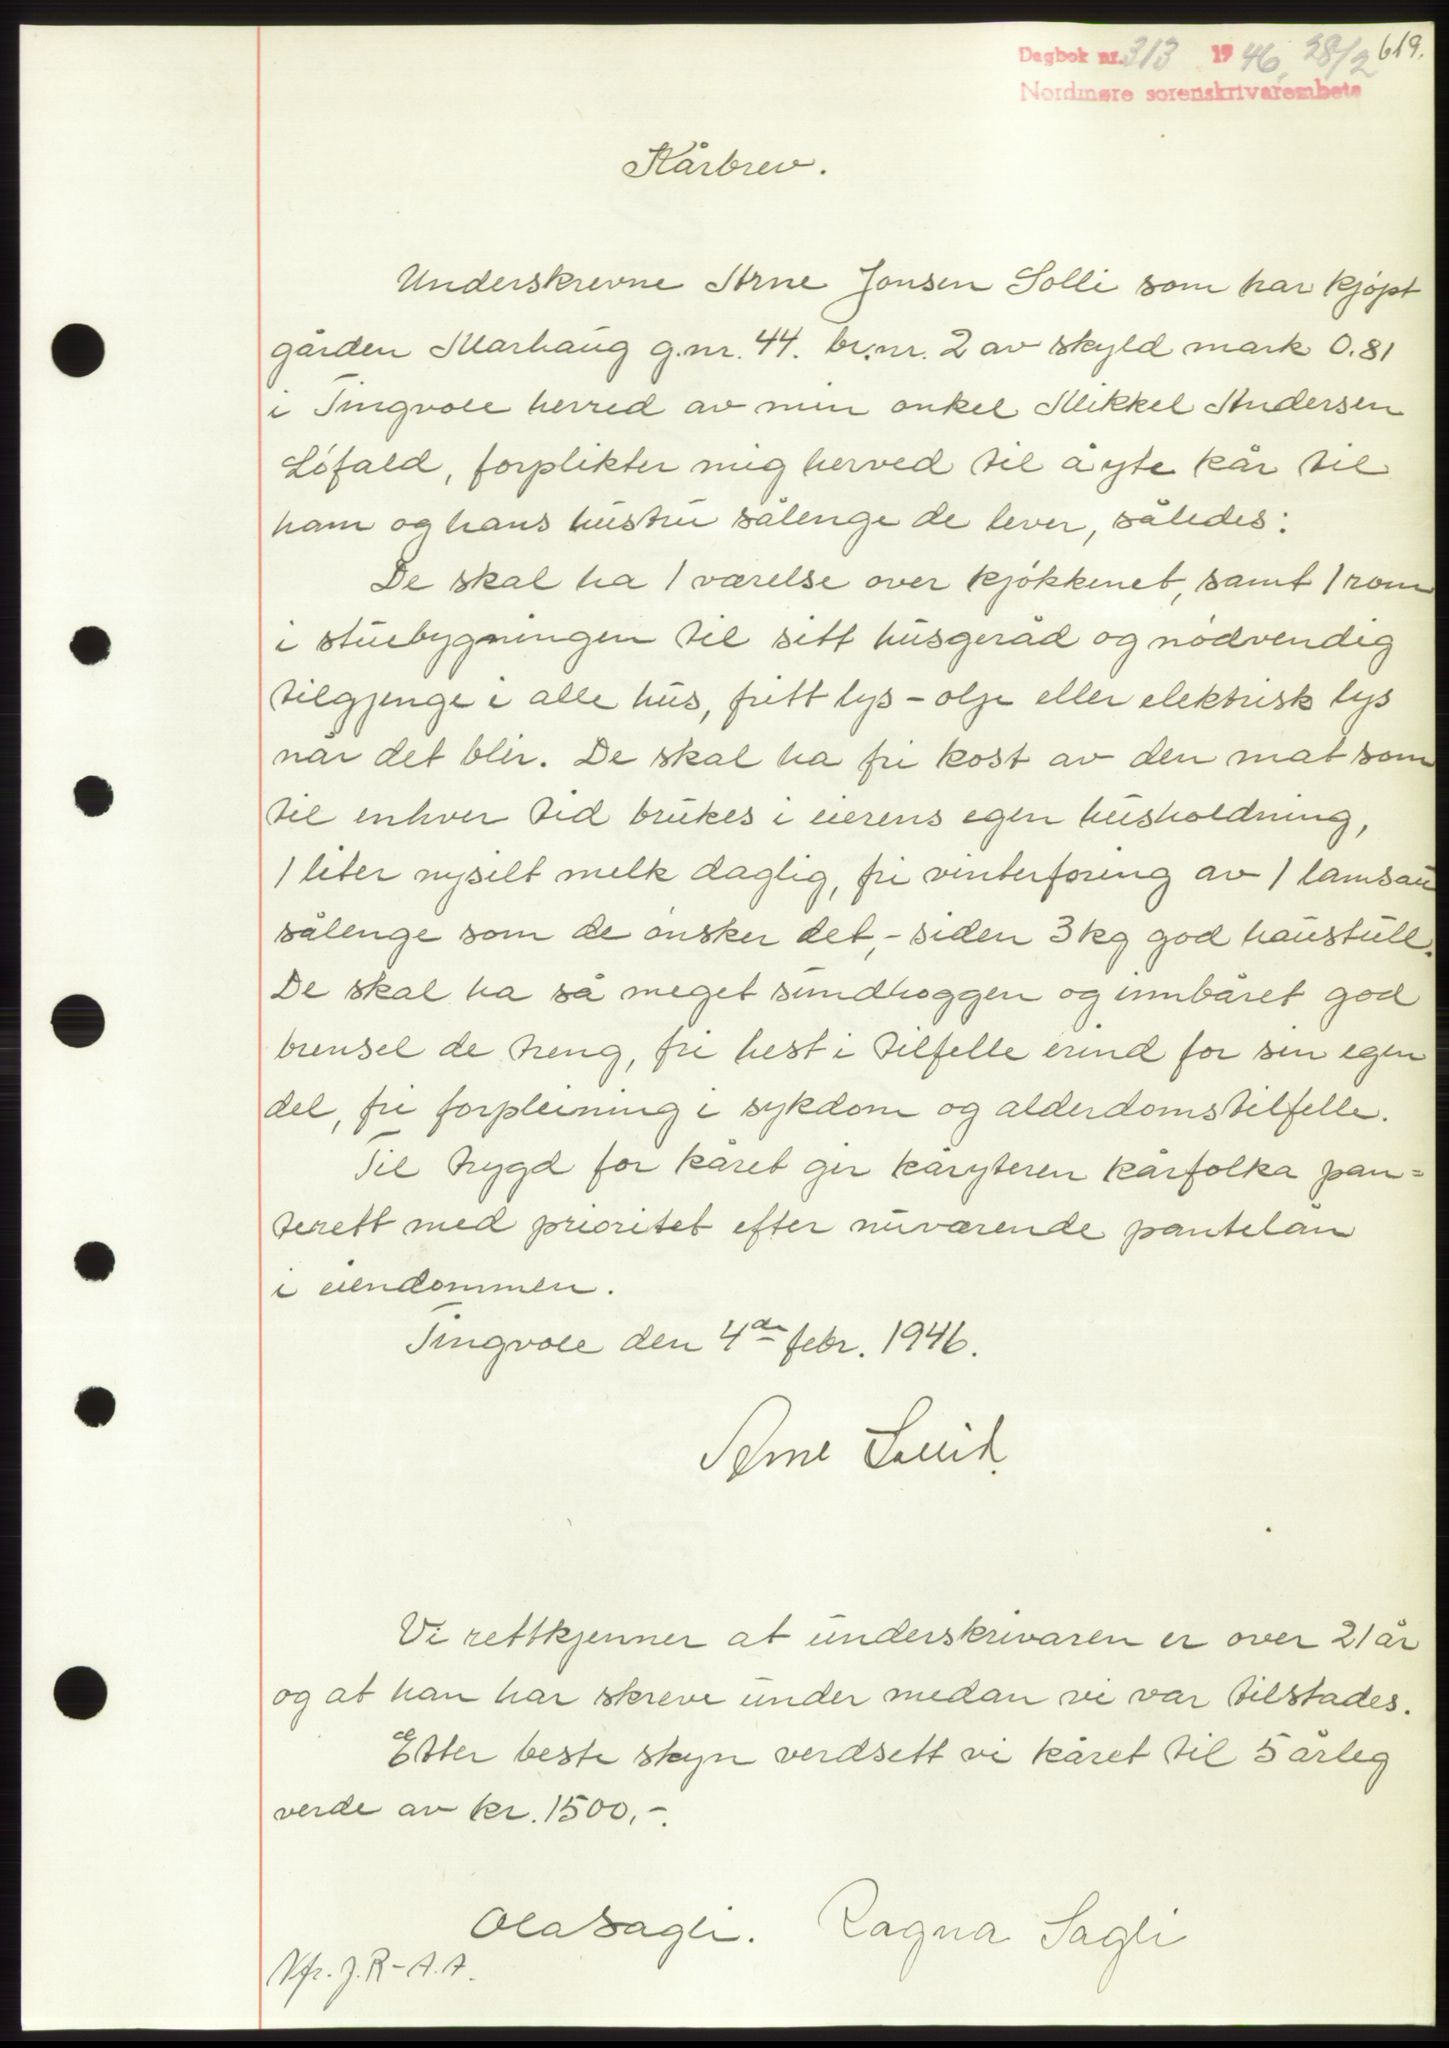 Dagbok nr. 313 1946, 28/2 619.
Nordmøre sorenskrivarembete
Kårbrev.
Underskrevne Arne Jonsen Solli som har kjøpt
gården Marhaug g.nr. 44. br.nr. 2 av skyld mark 0.81
i Tingvoll herred av min onkel Mikkel Andersen
Løfald, forplikter mig herved til å yte kår til
ham og hans hustru sålenge de lever, således:
De skal ha 1 værelse over kjøkkenet, samt 1 rom
i stuebygningen til sitt husgeråd og nødvendig
tilgjenge i alle hus, fritt lys - olje eller elektrisk lys
når det blir. De skal ha fri kost av den mat som
til enhver tid brukes i eierens egen husholdning,
1 liter nysilt melk daglig, fri vinterforing av 1 lamsau
sålenge som de ønsker det, - siden 3 kg god haustull.
De skal ha så meget sundhoggen og innbåret god
brensel de treng, fri hest i tilfelle erind for sin egen
del, fri forpleining i sykdom og alderdomstilfelle.
Til trygd for kåret gir kåryteren kårfolka pan=
terett med prioritet efter nuværende pantelån
i eiendommen.
Tingvoll den 4de febr. 1946.
Arne
Vi rettkjenner at underskrivaren er over 21 år
og at han har skreve under medan vi var tilstades.
Etter beste skyn verdsett vi kåret til 5 årleg
verde av kr. 1500,-.
Ola Sagli. Ragna Sagli
Vfr. J.R - A.A.